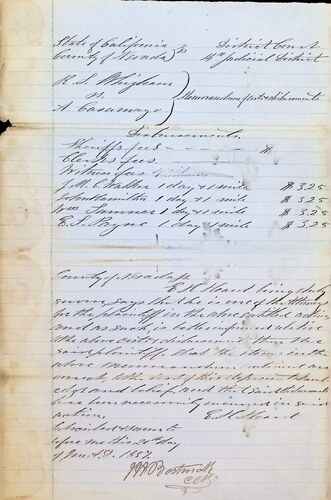 State of California } ss District Court
County of Nevada 4th Judicial District
R. S. Whigham
vs. Memorandum of costs & disbursements
A Casamayo
Disbursements
Sheriffs fees - - - - $
Clerks fees
Witness fees
J. M. C. Walker 1 day & 1 mile $ 3.25
John Hamilton 1 day & 1 mile $ 3.25
Wm Sumner 1 day & 1 mile $ 3.25
E. S. Payne 1 day & 1 mile $ 3.25
County of Nevada ss
being duly
sworn says that he is one of the Attorneys
for the plaintiff in the above entitled action
and as such is better informed relative
to the above costs & disbursements than the
said plaintiff, that the items in the
above memorandum contained are
correct, to the best of this deponents knowl
edge and belief, and that said disbursements
have been necessarily incurred in said
action.
Subscribed & sworn to
before me this day
of A.D. 1857.